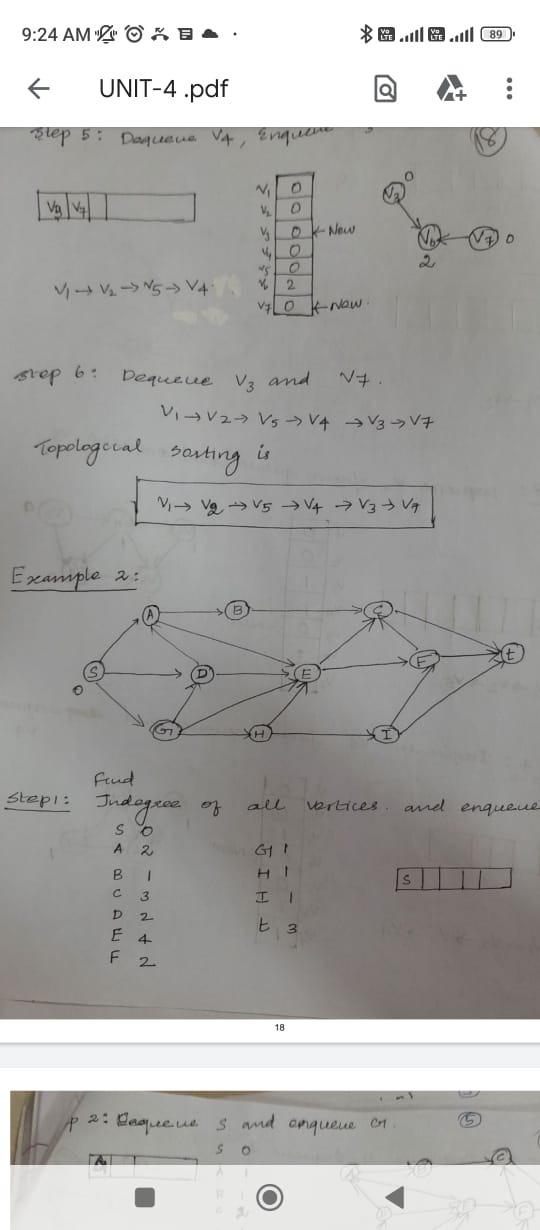 9:24 AM
89
UNIT-4 .pdf
Step 5: Dequeue V4, Enqueue
18
V3 V7
V1 0
V2 0
V3 0 ← New
V4 0
V5 0
V6 2
V7 0 ← New.
V3 0
V6 2
V7 0
V1 → V2 → V5 → V4
Step 6: Dequeue V3 and V7.
V1 → V2 → V5 → V4 → V3 → V7
Topological sorting is
V1 → V2 → V5 → V4 → V3 → V7
Example 2:
A B C
S D E F t
0
G H I
Find
Step1: Indegree of all vertices. and enqueue
S 0
A 2 G 1
B 1 H 1
C 3 I 1
D 2 t 3
E 4
F 2
S
18
p 2: Dequeue S and enqueue G.
5
S 0